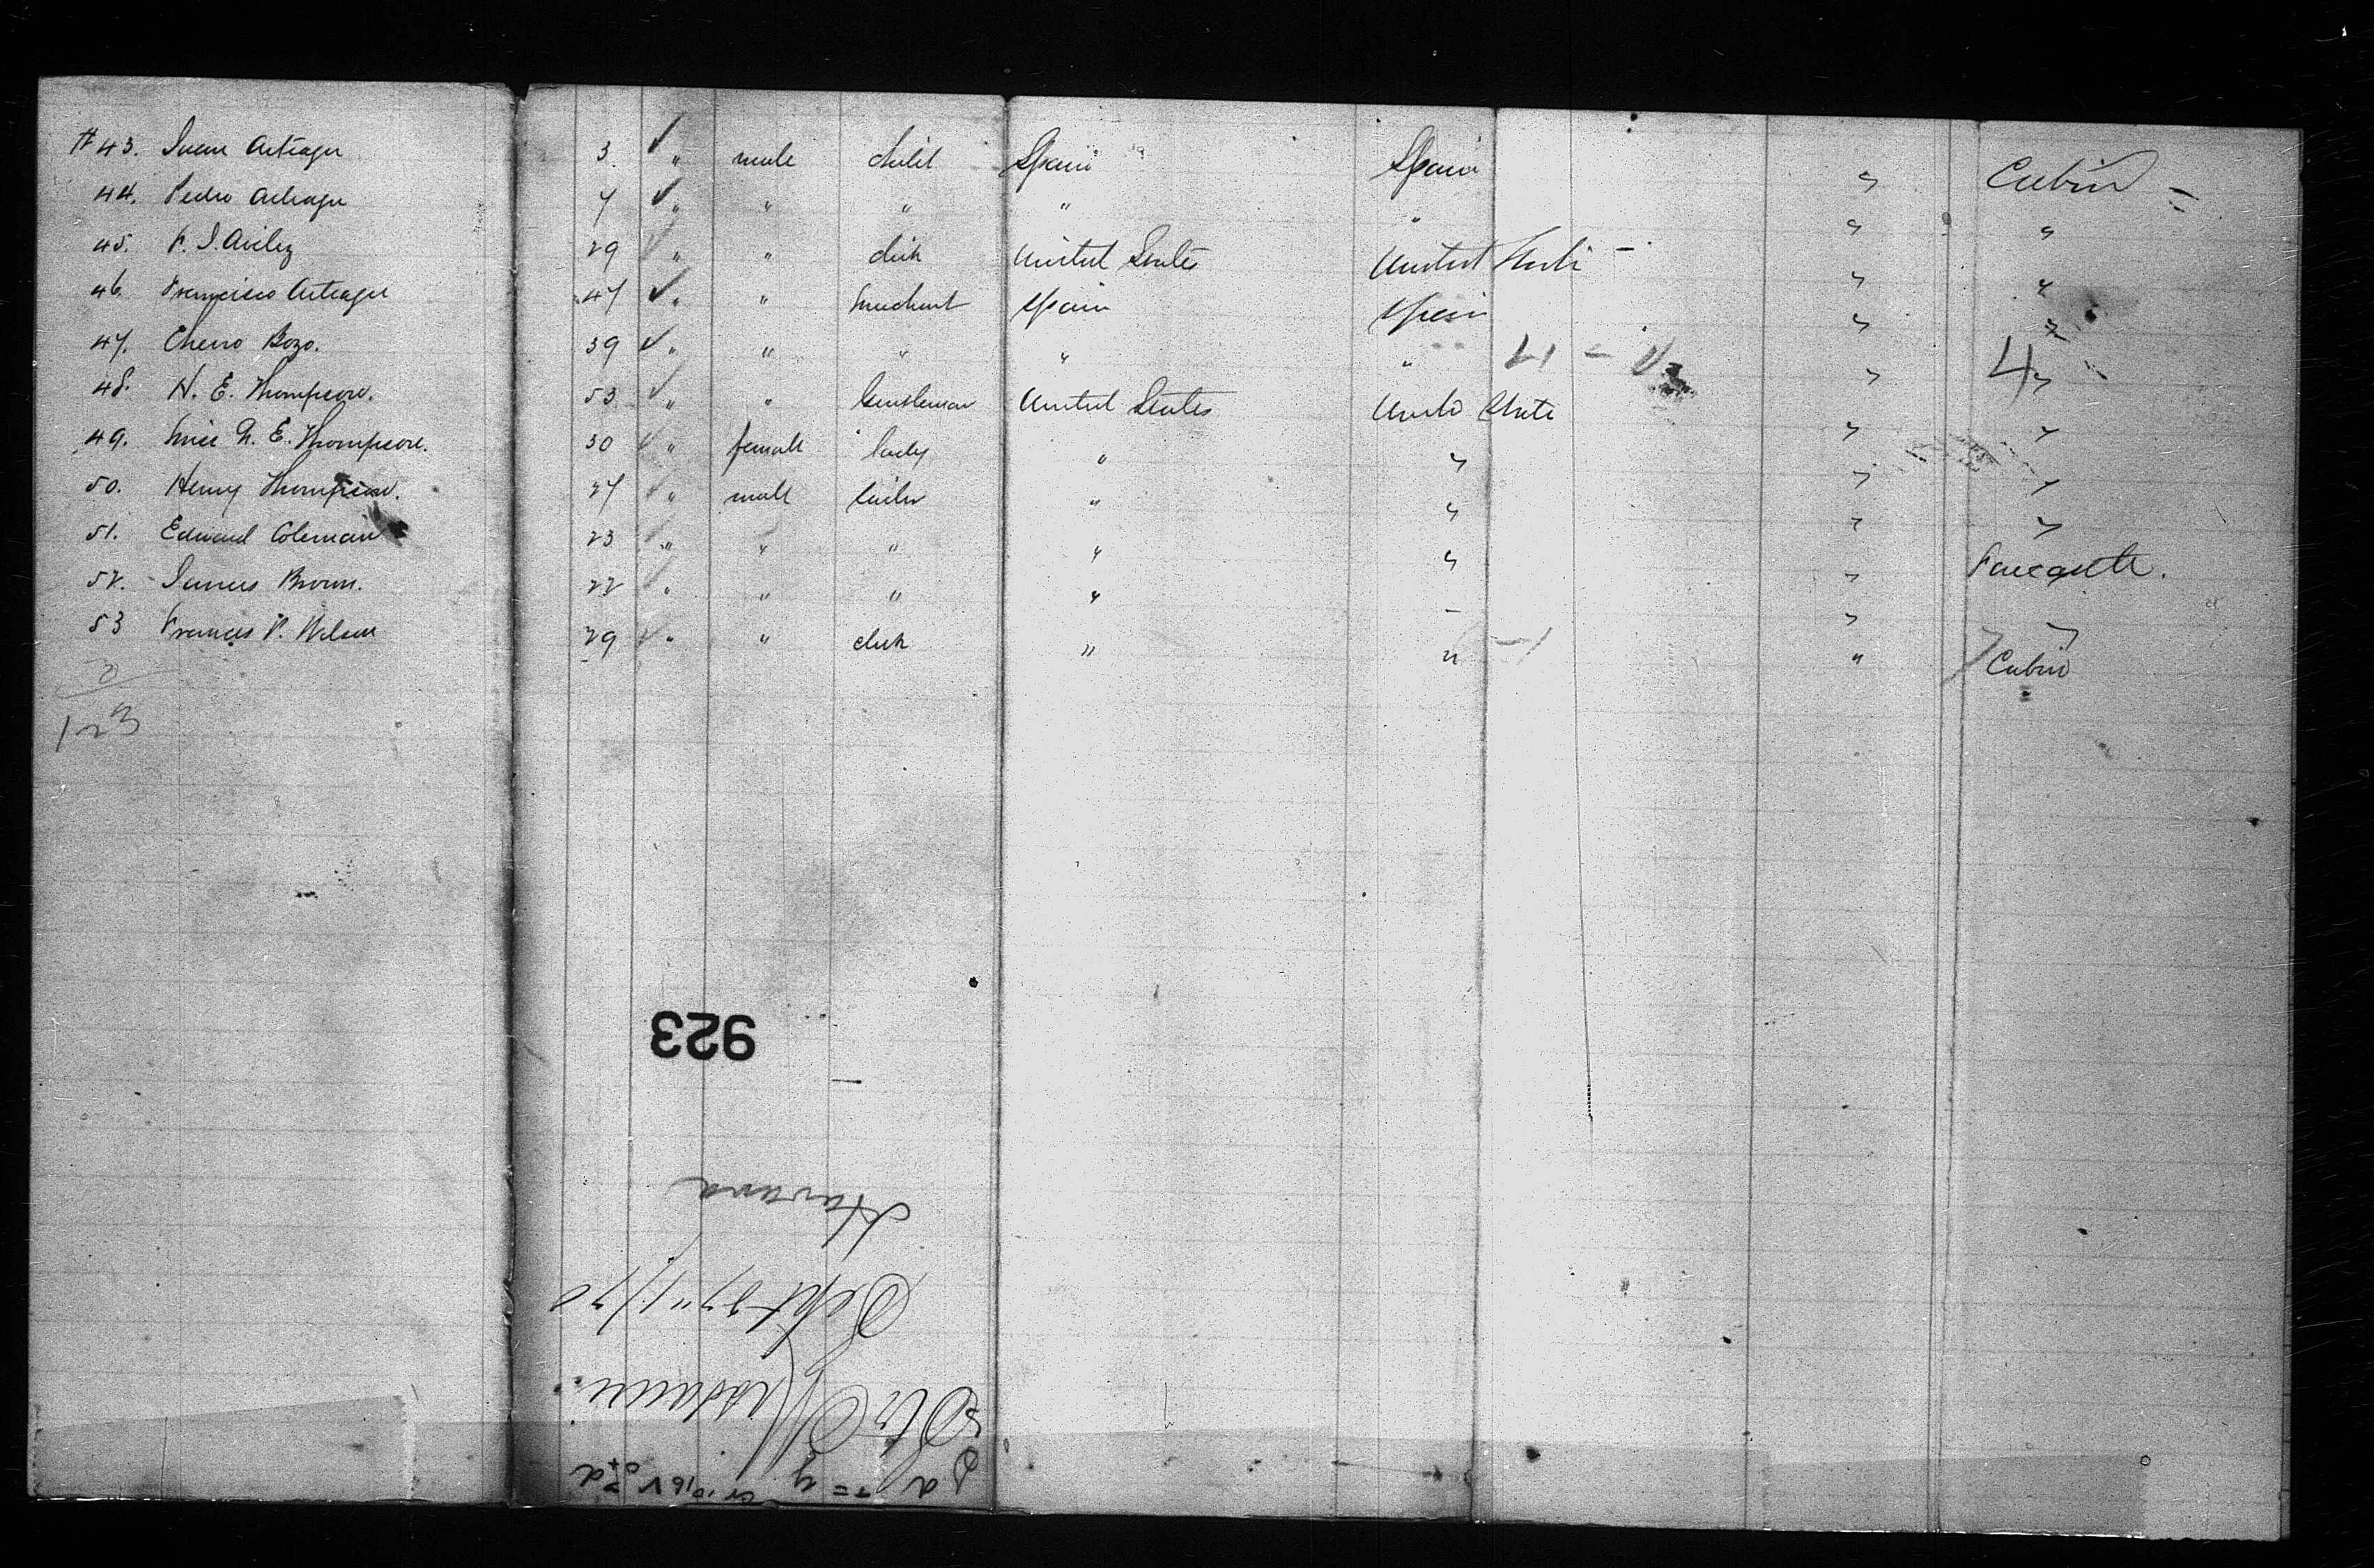 #43. Juan Arteaga 3. ✓ " male child Spain Spain " Cabin
44. Pedro Arteaga 7 ✓ " " " " " " "
45. F. J. Avilez 29 ✓ " " clerk United States United States - " "
46. Francisco Arteaga 47 ✓ " " merchant Spain Spain " "
47. Bozo. 39 ✓ " " " " " " 4 "
48. H. E. Thompson. 53 ✓ " " Gentleman United States United States " "
49. E. Thompson. 30 ✓ " female lady " " " "
50. Henry Thompson. 27 ✓ " male sailor " " " "
51. Edward Coleman 23 " " " " " " Forecastle.
52. James Brown. 22 ✓ " " " " " " "
53 Francis P. Wilson 29 ✓ " " clerk " " " Cabin
123
923
Havana
Sept 27" / 70
Str